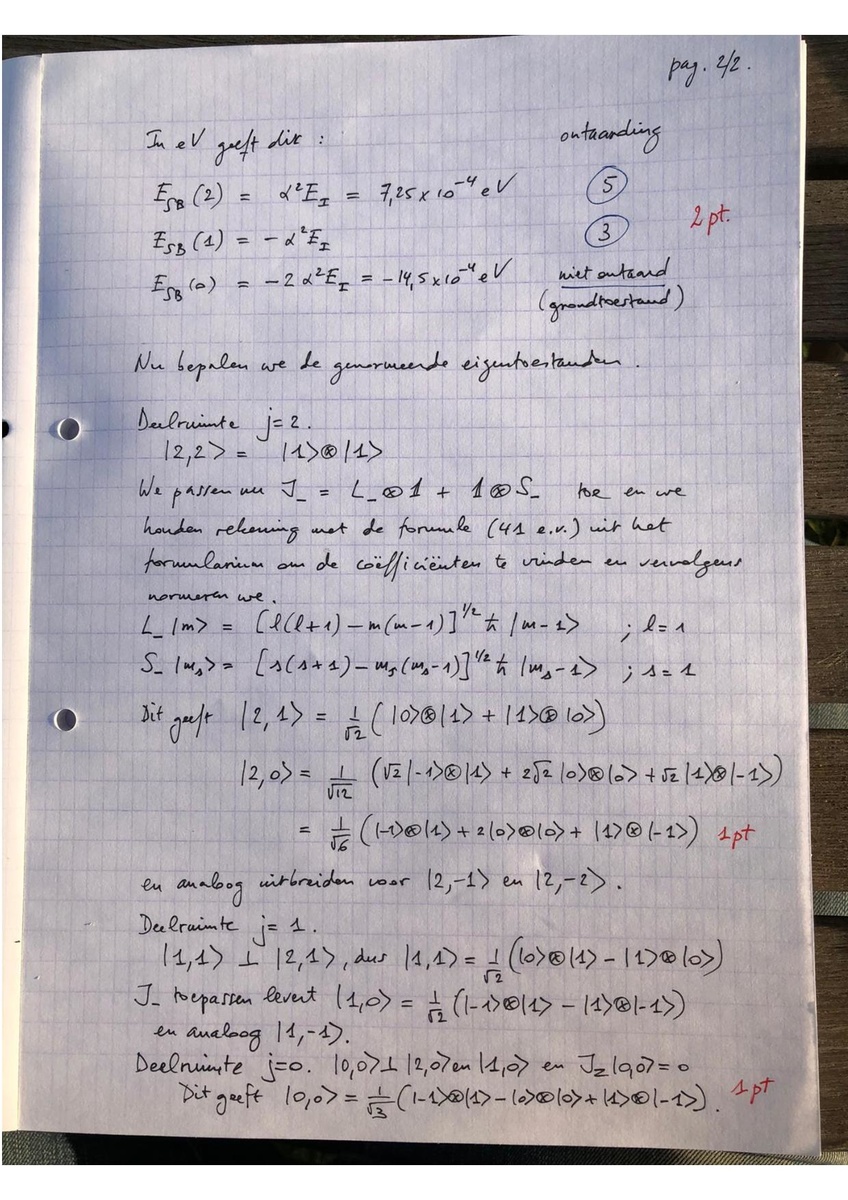 pag. 2/2.
In eV geeft dit : ontaarding
E_SB (2) = α²E_I = 7,25 x 10⁻⁴ eV 5
2 pt.
E_SB (1) = - α²E_I 3
E_SB (0) = -2 α²E_I = -14,5 x 10⁻⁴ eV niet ontaard
(grondtoestand)
Nu bepalen we de genormeerde eigentoestanden.
Deelruimte j=2.
|2,2⟩ = |1⟩⊗|1⟩
We passen nu J_ = L_⊗1 + 1⊗S_ toe en we
houden rekening met de formule (41 e.v.) uit het
formularium om de coëfficiënten te vinden en vervolgens
normeren we.
L_ |m⟩ = [l(l+1) - m(m-1)]^1/2 ħ |m-1⟩ ; l=1
S_ |m_s⟩ = [s(s+1) - m_s(m_s-1)]^1/2 ħ |m_s-1⟩ ; s=1
Dit geeft |2,1⟩ = 1/√2 (|0⟩⊗|1⟩ + |1⟩⊗|0⟩)
|2,0⟩ = 1/√12 (√2 |-1⟩⊗|1⟩ + 2√2 |0⟩⊗|0⟩ + √2 |1⟩⊗|-1⟩)
= 1/√6 (|-1⟩⊗|1⟩ + 2|0⟩⊗|0⟩ + |1⟩⊗|-1⟩) 1pt
en analoog uitbreiden voor |2,-1⟩ en |2,-2⟩.
Deelruimte j=1.
|1,1⟩ ⊥ |2,1⟩, dus |1,1⟩ = 1/√2 (|0⟩⊗|1⟩ - |1⟩⊗|0⟩)
J_ toepassen levert |1,0⟩ = 1/√2 (|-1⟩⊗|1⟩ - |1⟩⊗|-1⟩)
en analoog |1,-1⟩.
Deelruimte j=0. |0,0⟩ ⊥ |2,0⟩ en |1,0⟩ en J_z|0,0⟩=0
Dit geeft |0,0⟩ = 1/√3 (|-1⟩⊗|1⟩ - |0⟩⊗|0⟩ + |1⟩⊗|-1⟩). 1pt